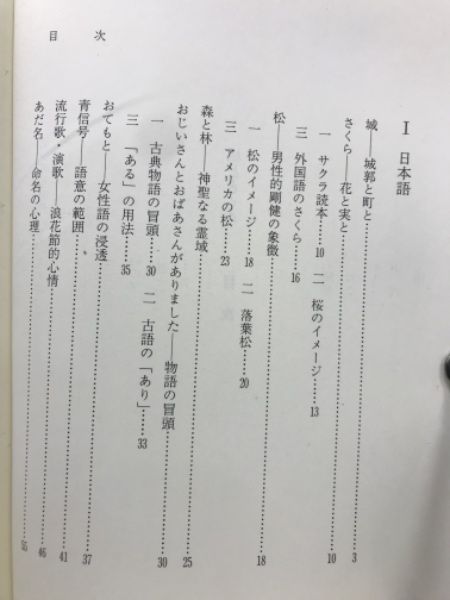 目次
Ⅰ 日本語
城――城郭と町と……3
さくら――花と実と……10
一 サクラ読本……10 二 桜のイメージ……13
三 外国語のさくら……16
松――男性的剛健の象徴……18
一 松のイメージ……18 二 落葉松……20
三 アメリカの松……23
森と林――神聖なる霊域……25
おじいさんとおばあさんがありました――物語の冒頭……30
一 古典物語の冒頭……30 二 古語の「あり」……33
三 「ある」の用法……35
おてもと――女性語の浸透……37
青信号――語意の範囲……41
流行歌・演歌――浪花節的心情……46
あだ名――命名の心理……55